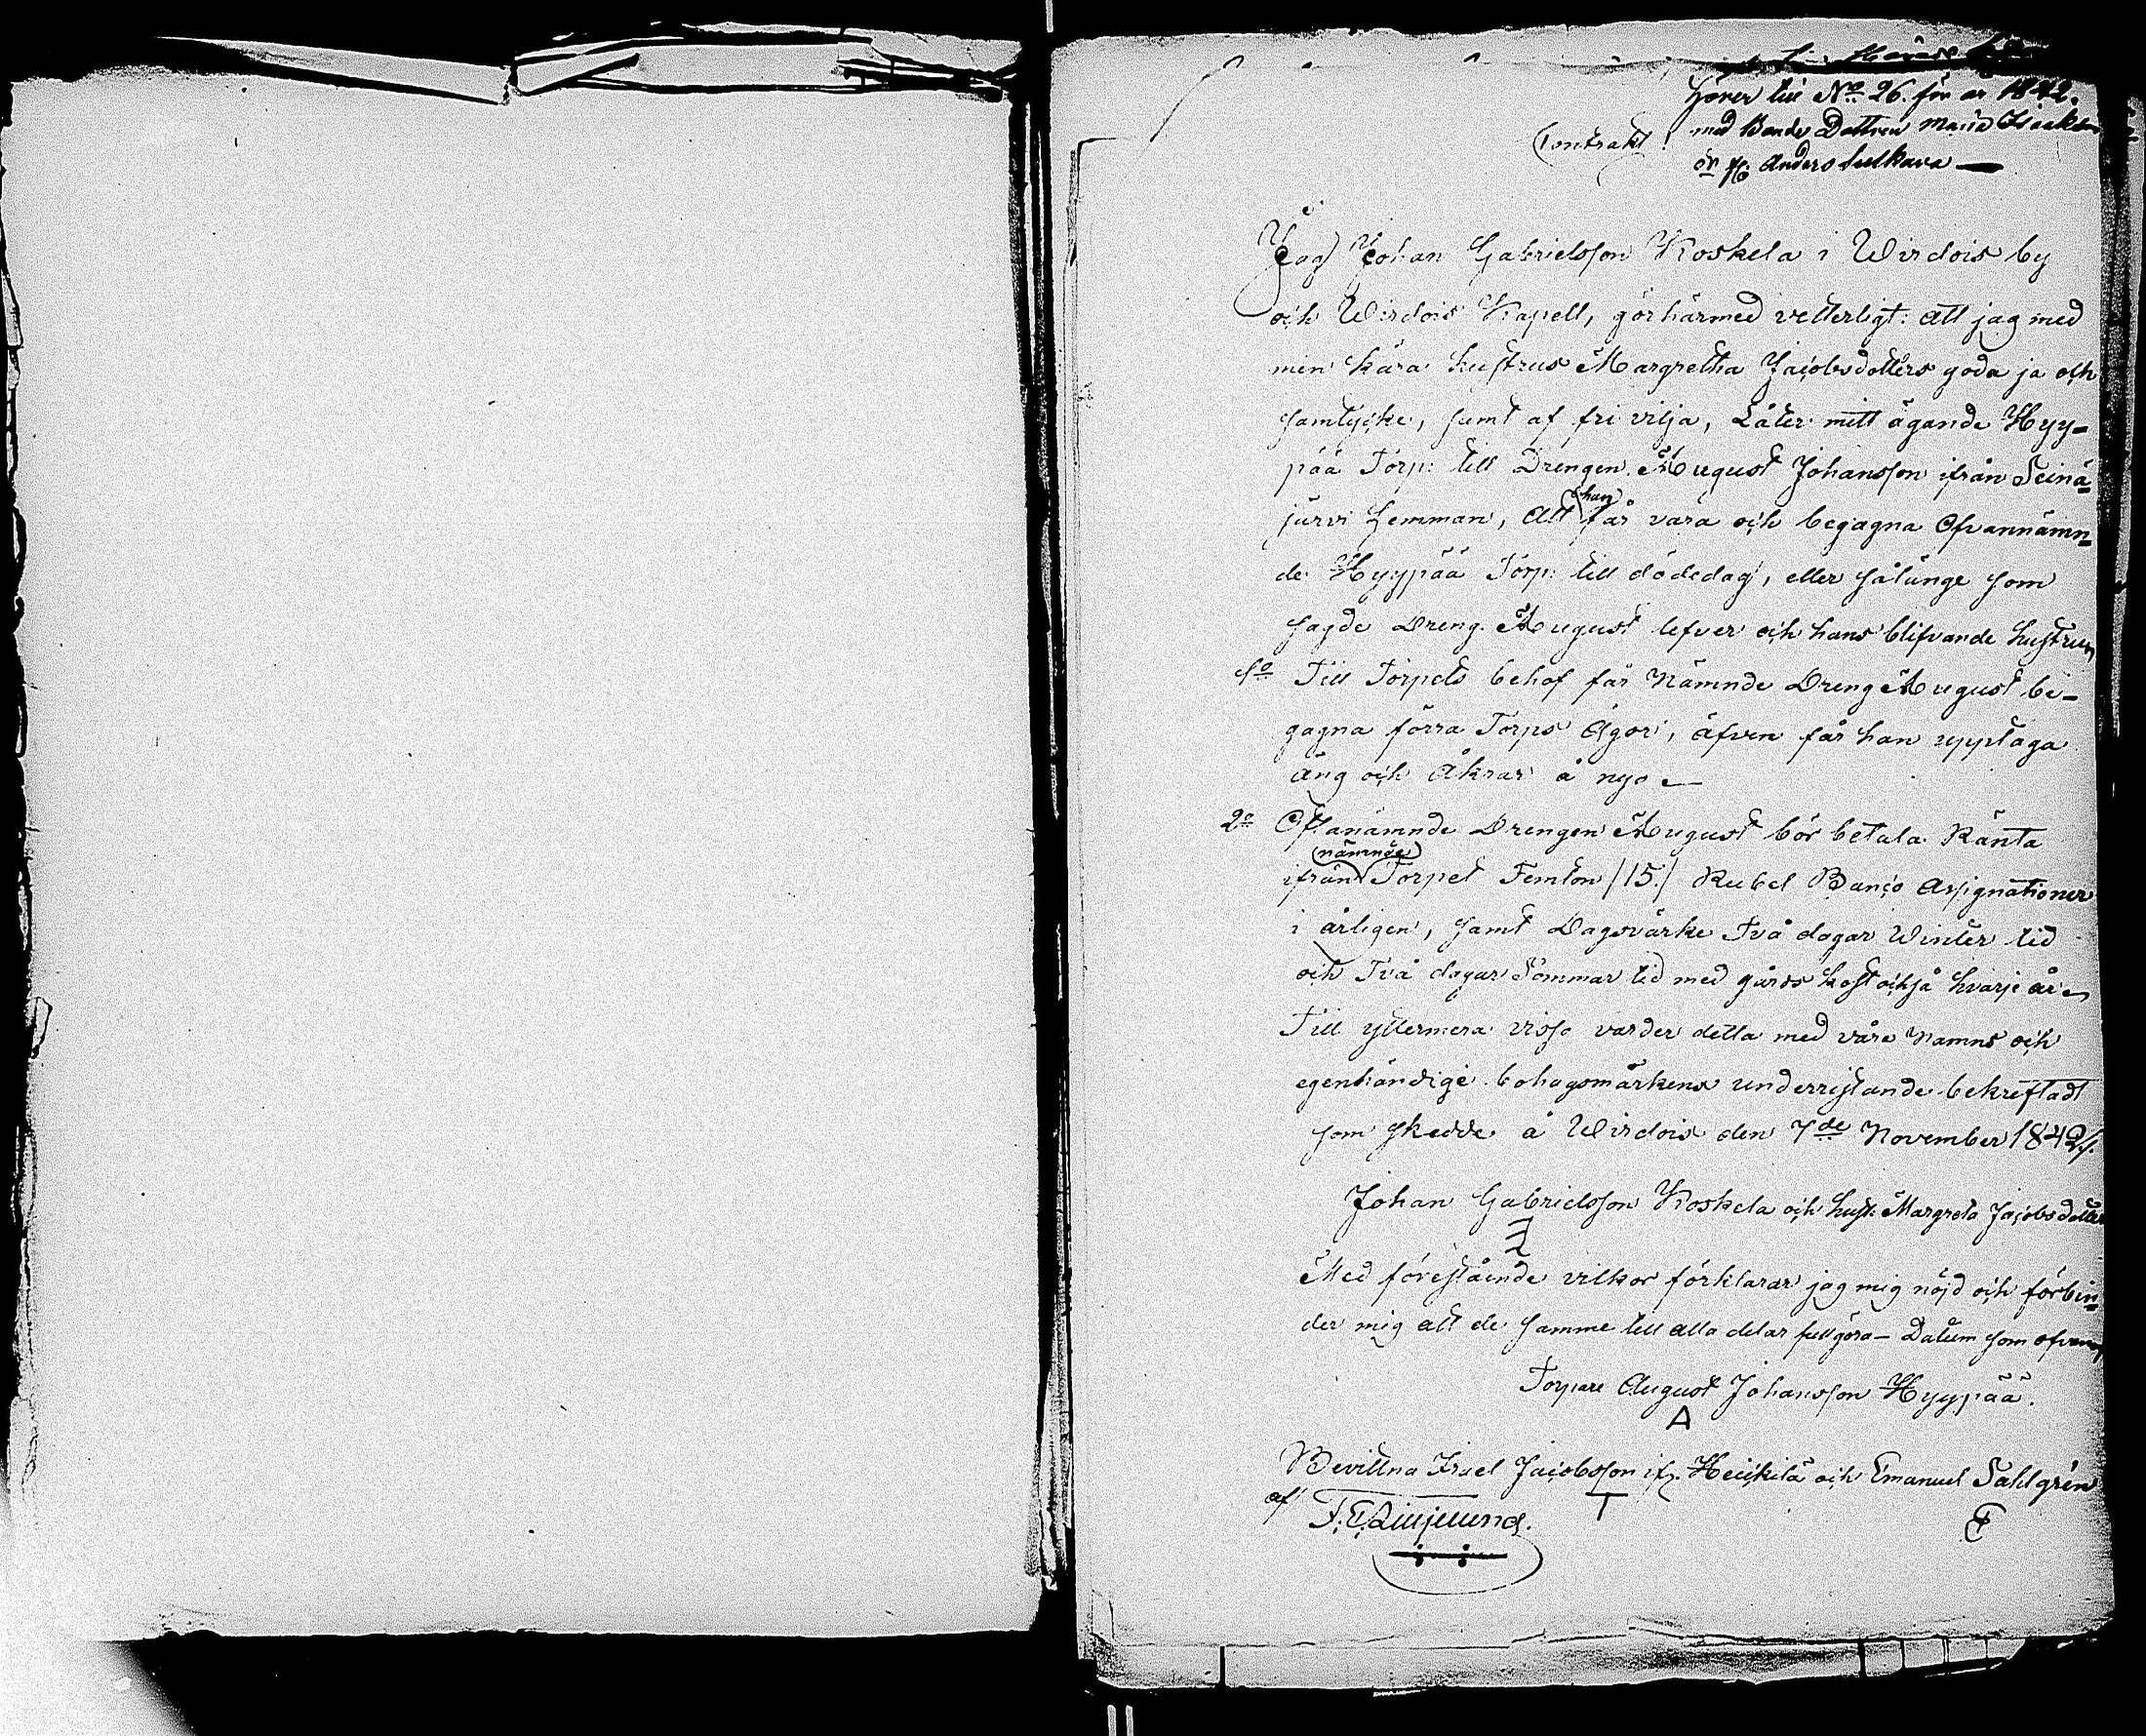 hörer till No 26. för år 1842.
med Bonde Dottren Maria Isaks
Contrakt!
Anders Sulkava —
Jag Johan Gabrielsson Koskela i Wirdois by
och Wirdois Kapell, gör härmed vetterligt: att jag med
min kära hustrus Margretha Jacobsdotters goda ja och
samtycke, samt af fri vilja, Låter mitt ägande Hyy-
pää Torp: till Drengen August Johansson ifrån Seinä-
järvi hemman, att (han) får vara och begagna Ofvannämn-
de Hyypää Torp: till dödedag, eller sålänge som
sagde Dreng August lefver och hans blifvande hustru
1o Till Torpets behof får Nämnde Dreng August be-
gagna förra Torps Ägor, äfven får han upptaga
äng och åkrar å nyo —
2o Oftanämnde Drengen August bör betala Ränta
ifrån (nämnde) Torpet Femton /15./ Rubel Banco Assignationer
i årligen, samt Dagsvärke Två dagar Winter tid
och Två dagar Sommar tid med gårds kost också hvarje år
Till yttermera visso varder detta med våra Namns och
egenhändige bohagsmärkens underristande bekreftadt
som skedde å Wirdois den 7de November 1842/.
Johan Gabrielsson Koskela och hust: Margreta Jacobsdotter
Med förestående vilkor förklarar jag mig nöjd och förbin-
der mig att de samme till alla delar fullgöra — Datum som ofvan
Torpare August Johansson Hyypää.
A
Bevittna Israel Jacobsson ifr. Heickilä och Emanuel Sahlgrén
af
T
E